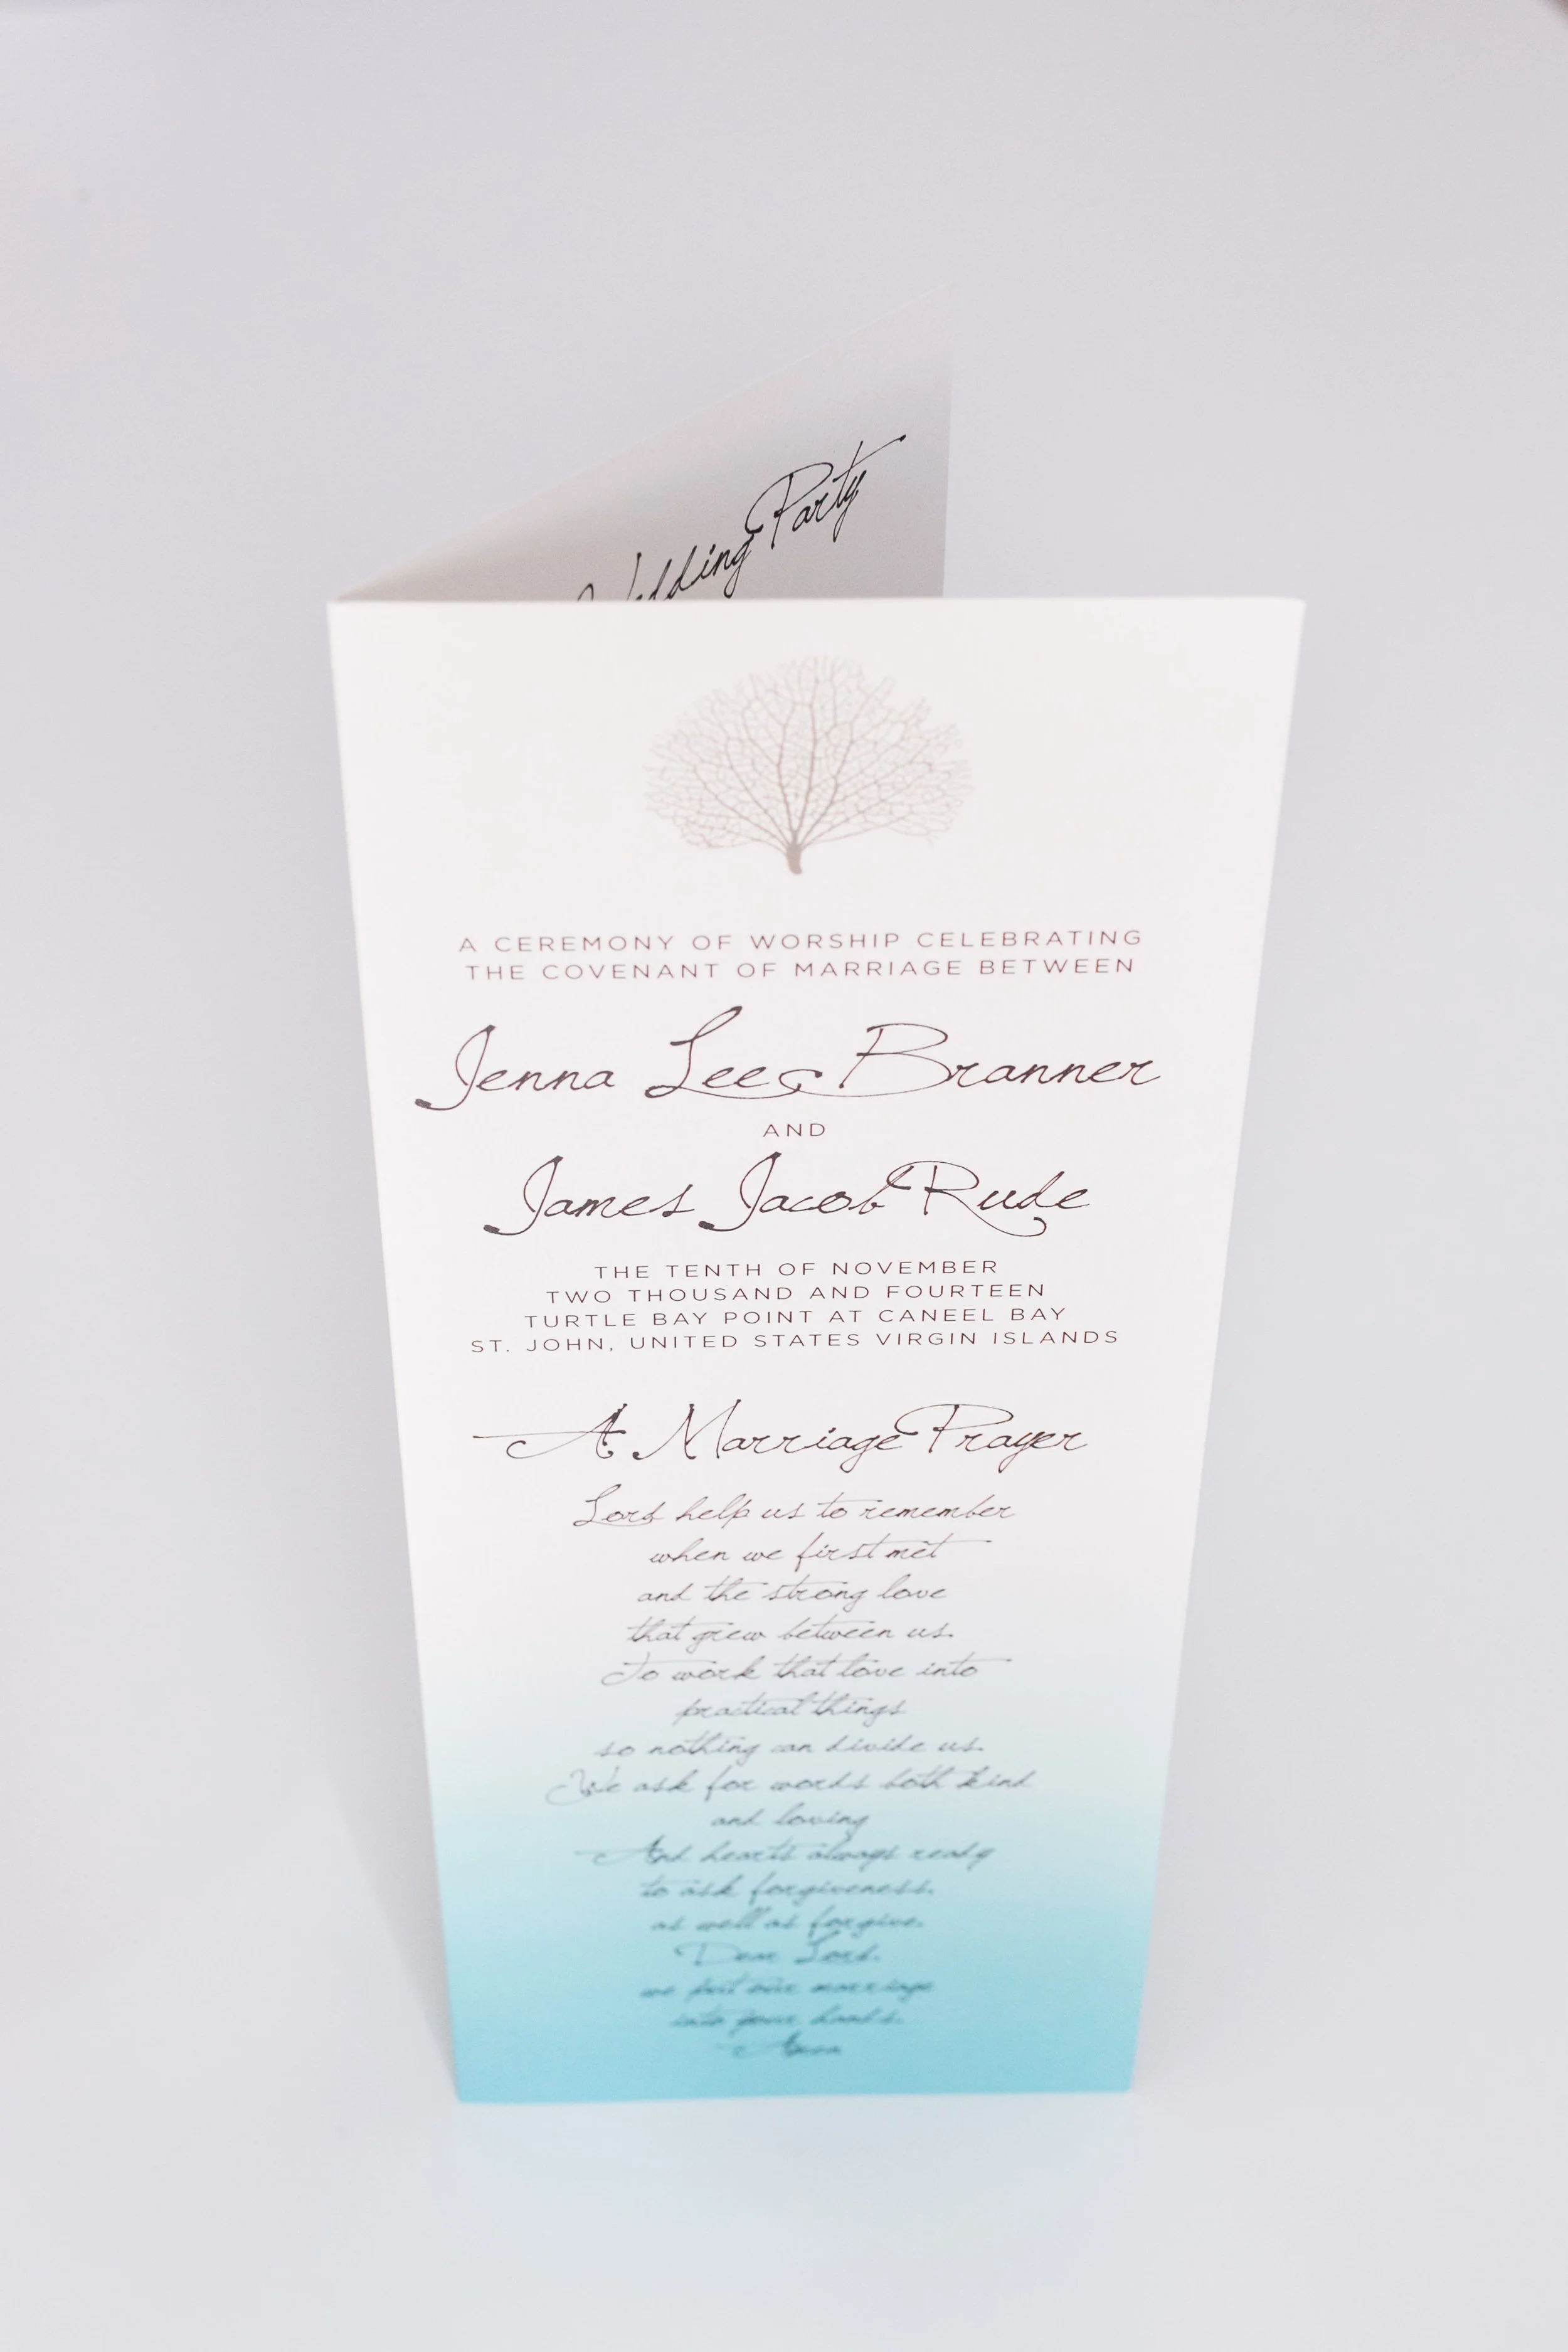 Wedding Party
A CEREMONY OF WORSHIP CELEBRATING
THE COVENANT OF MARRIAGE BETWEEN
Jenna Lee Branner
AND
James Jacob Rude
THE TENTH OF NOVEMBER
TWO THOUSAND AND FOURTEEN
TURTLE BAY POINT AT CANEEL BAY
ST. JOHN, UNITED STATES VIRGIN ISLANDS
A Marriage Prayer
Lord help us to remember
when we first met
and the strong love
that grew between us.
To work that love into
practical things
so nothing can divide us.
We ask for words both kind
and loving
And hearts always ready
to ask forgiveness.
as well as forgive.
Dear Lord.
we put our marriage
into your hands.
Amen